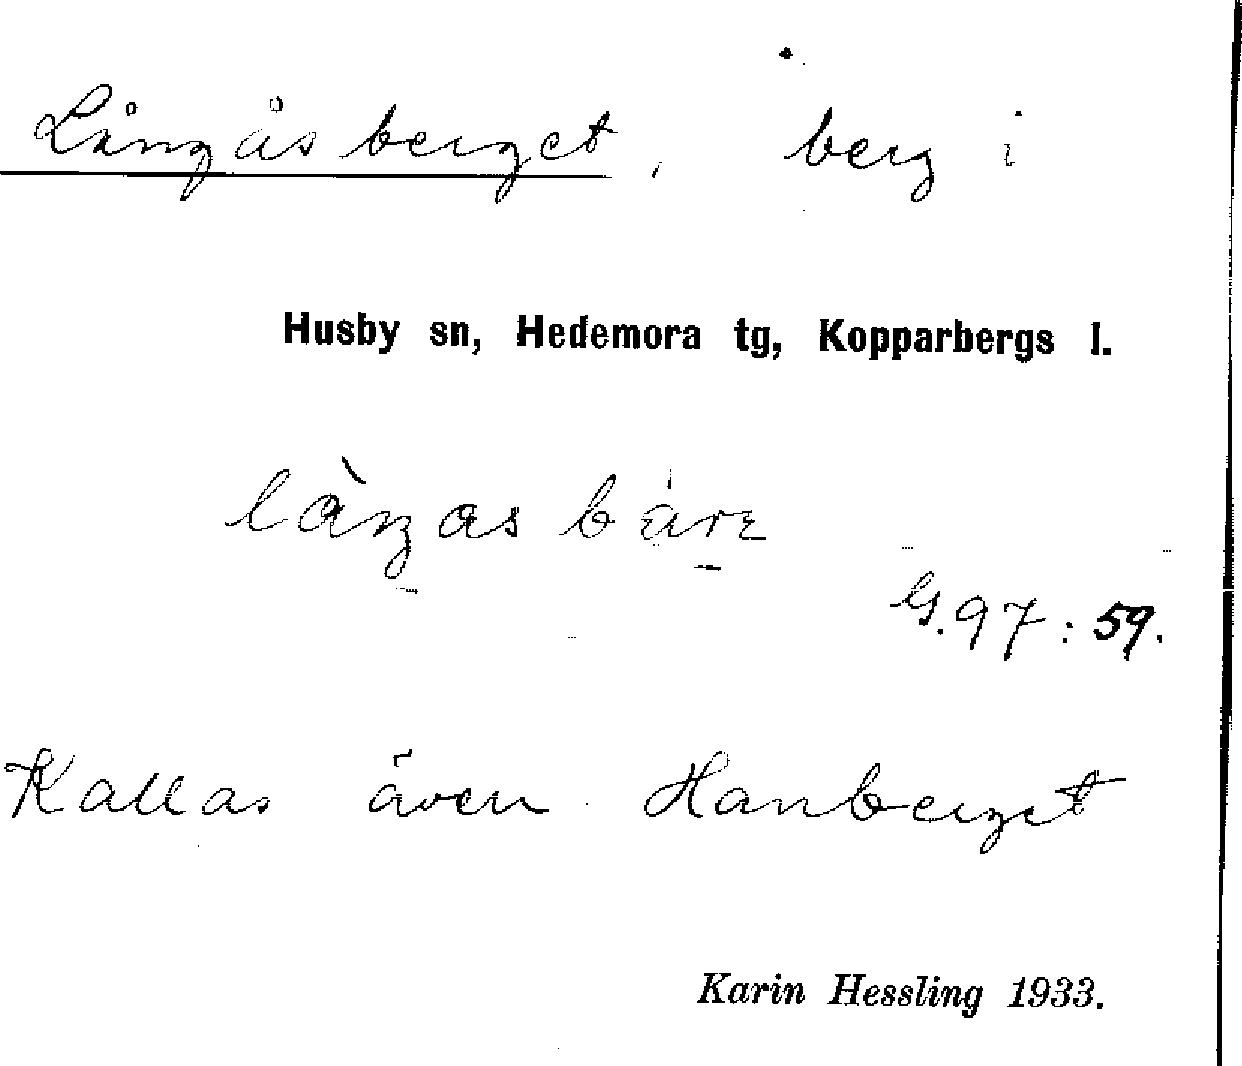 Långåsberget, berg i
Husby sn, Hedemora tg, Kopparbergs l.
G. 97 : 59.
Kallas även Hanberget
Karin Hessling 1933.